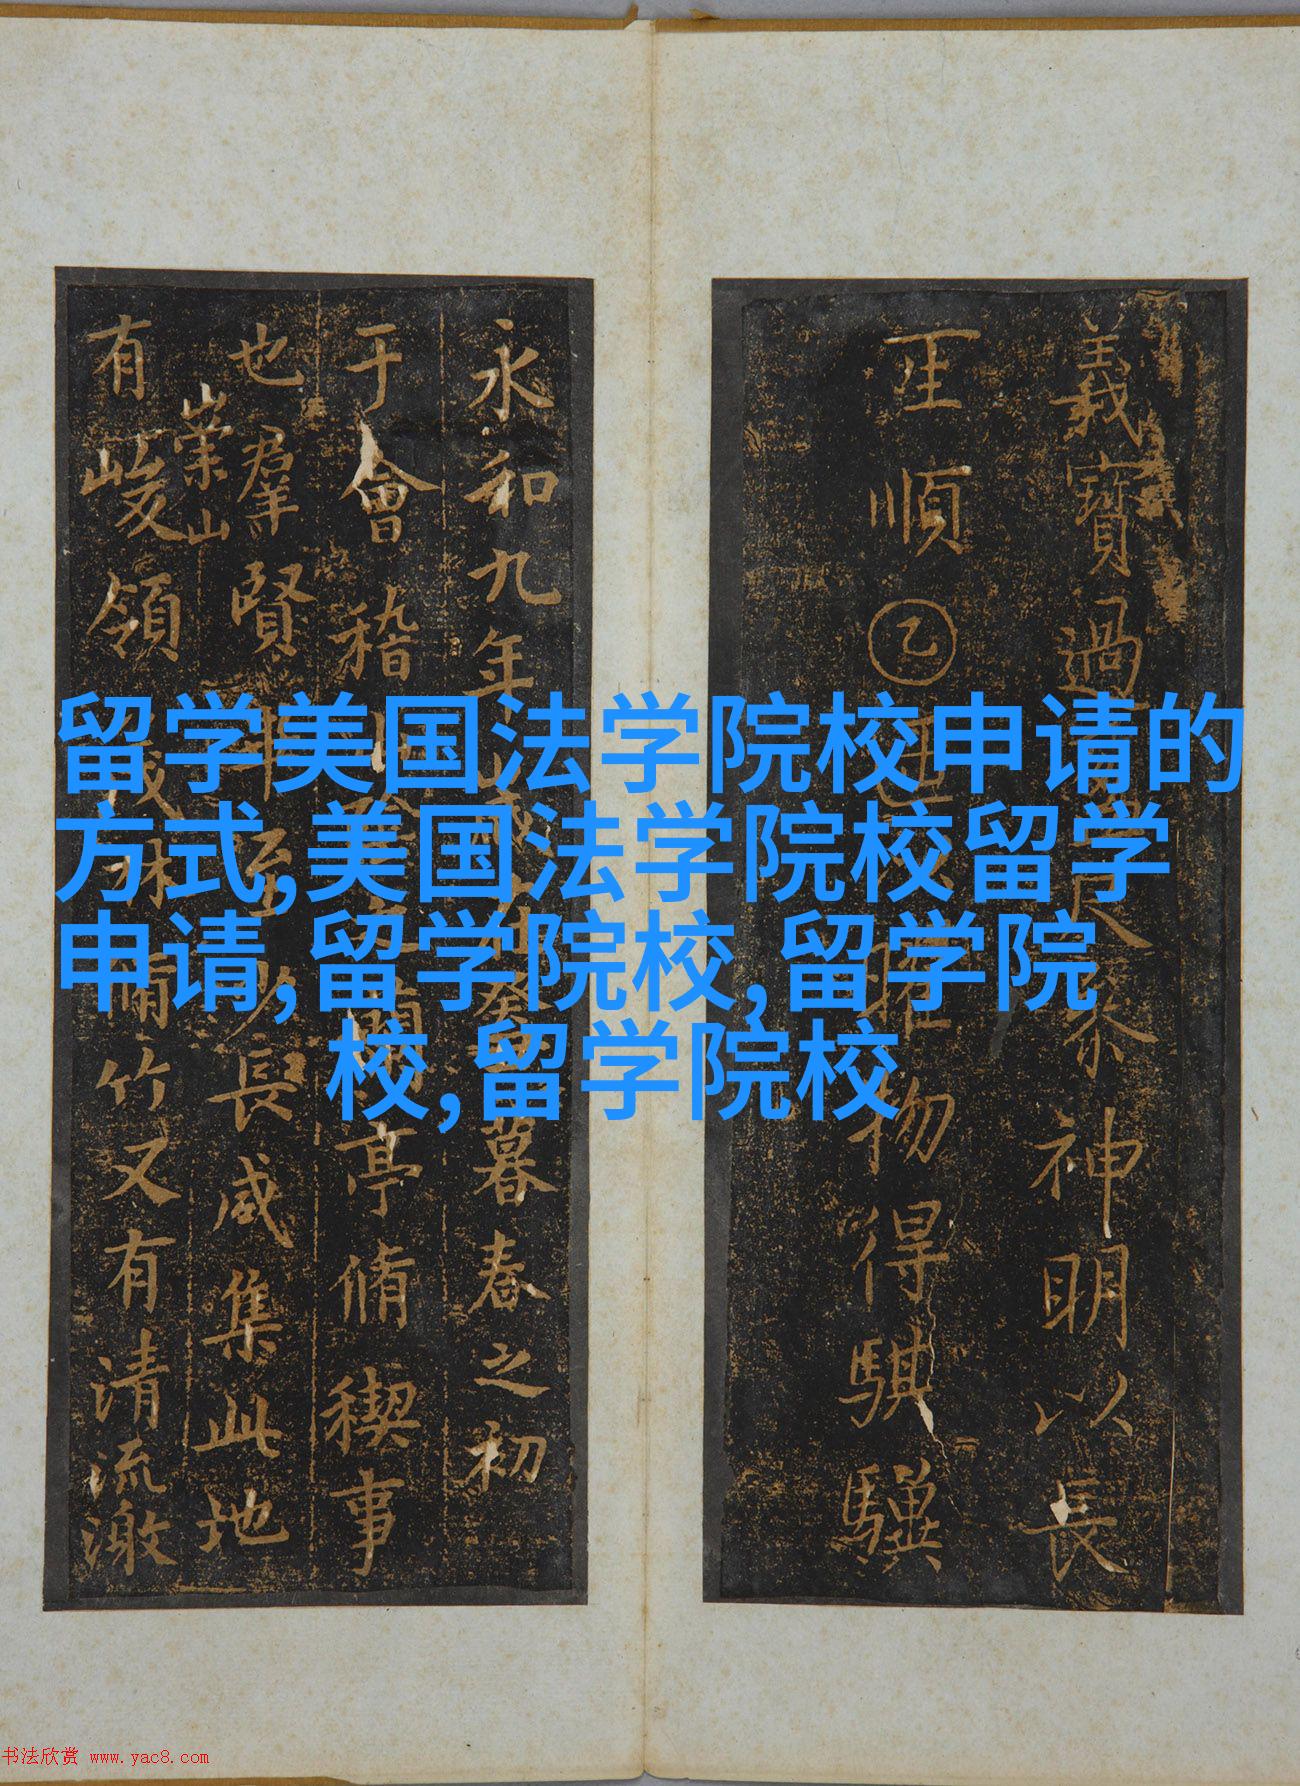 留学美国法学院校申请的
方式,美国法学院校留学
申请,留学院校,留学院
校,留学院校
義寶過神明以長
順乙物得騏驥
永和九年暮春之初
于會稽亭脩禊事
也羣賢至少長咸集此地
崇山
有峻領茂林脩竹又有清流激
书法欣赏 www.yac8.com